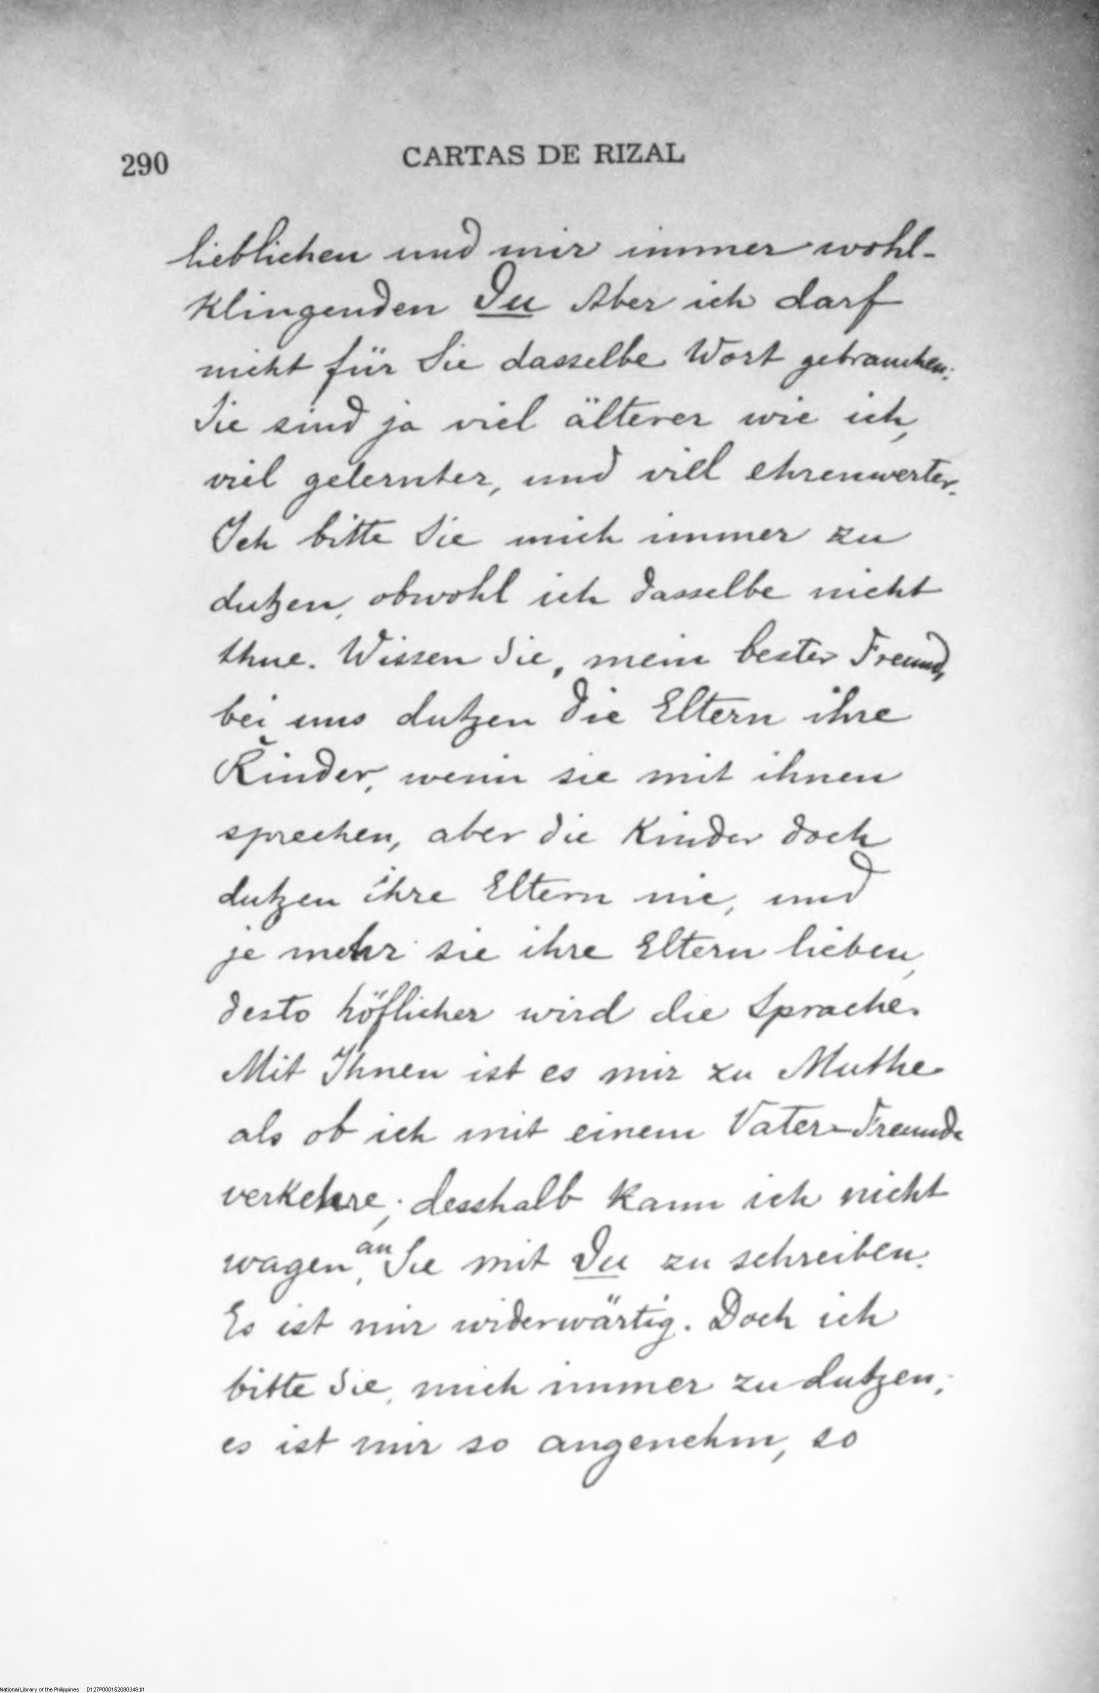 290
CARTAS DE RIZAL
lieblichen und mir immer wohl-
klingenden Du Aber ich darf
nicht für Sie dasselbe Wort gebrauchen:
Sie sind ja viel älterer wie ich,
viel gelernter, und viel ehrenwerter.
Ich bitte Sie mich immer zu
dutzen, obwohl ich dasselbe nicht
thue. Wissen Sie, mein bester Freund,
bei uns dutzen die Eltern ihre
Kinder, wenn sie mit ihnen
sprechen, aber die Kinder doch
dutzen ihre Eltern nie, und
je mehr sie ihre Eltern lieben,
desto höflicher wird die Sprache.
Mit Ihnen ist es mir zu Muthe
als ob ich mit einem Vater-Freunde
verkehre; desshalb kann ich nicht
wagen, an Sie mit Du zu schreiben.
Es ist mir widerwärtig. Doch ich
bitte Sie, mich immer zu dutzen;
es ist mir so angenehm, so
National Library of the Philippines